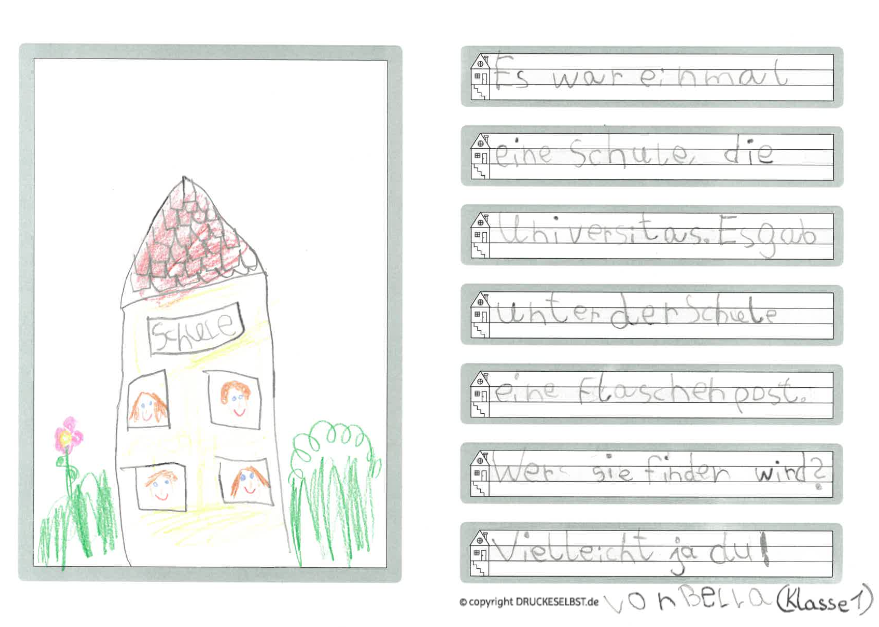 Schule
Es war einmal
eine Schule, die
Universitas. Es gab
unter der Schule
eine Flaschenpost.
Wer sie finden wird?
Vielleicht ja du!
© copyright DRUCKESELBST.de von Bella (Klasse 1)